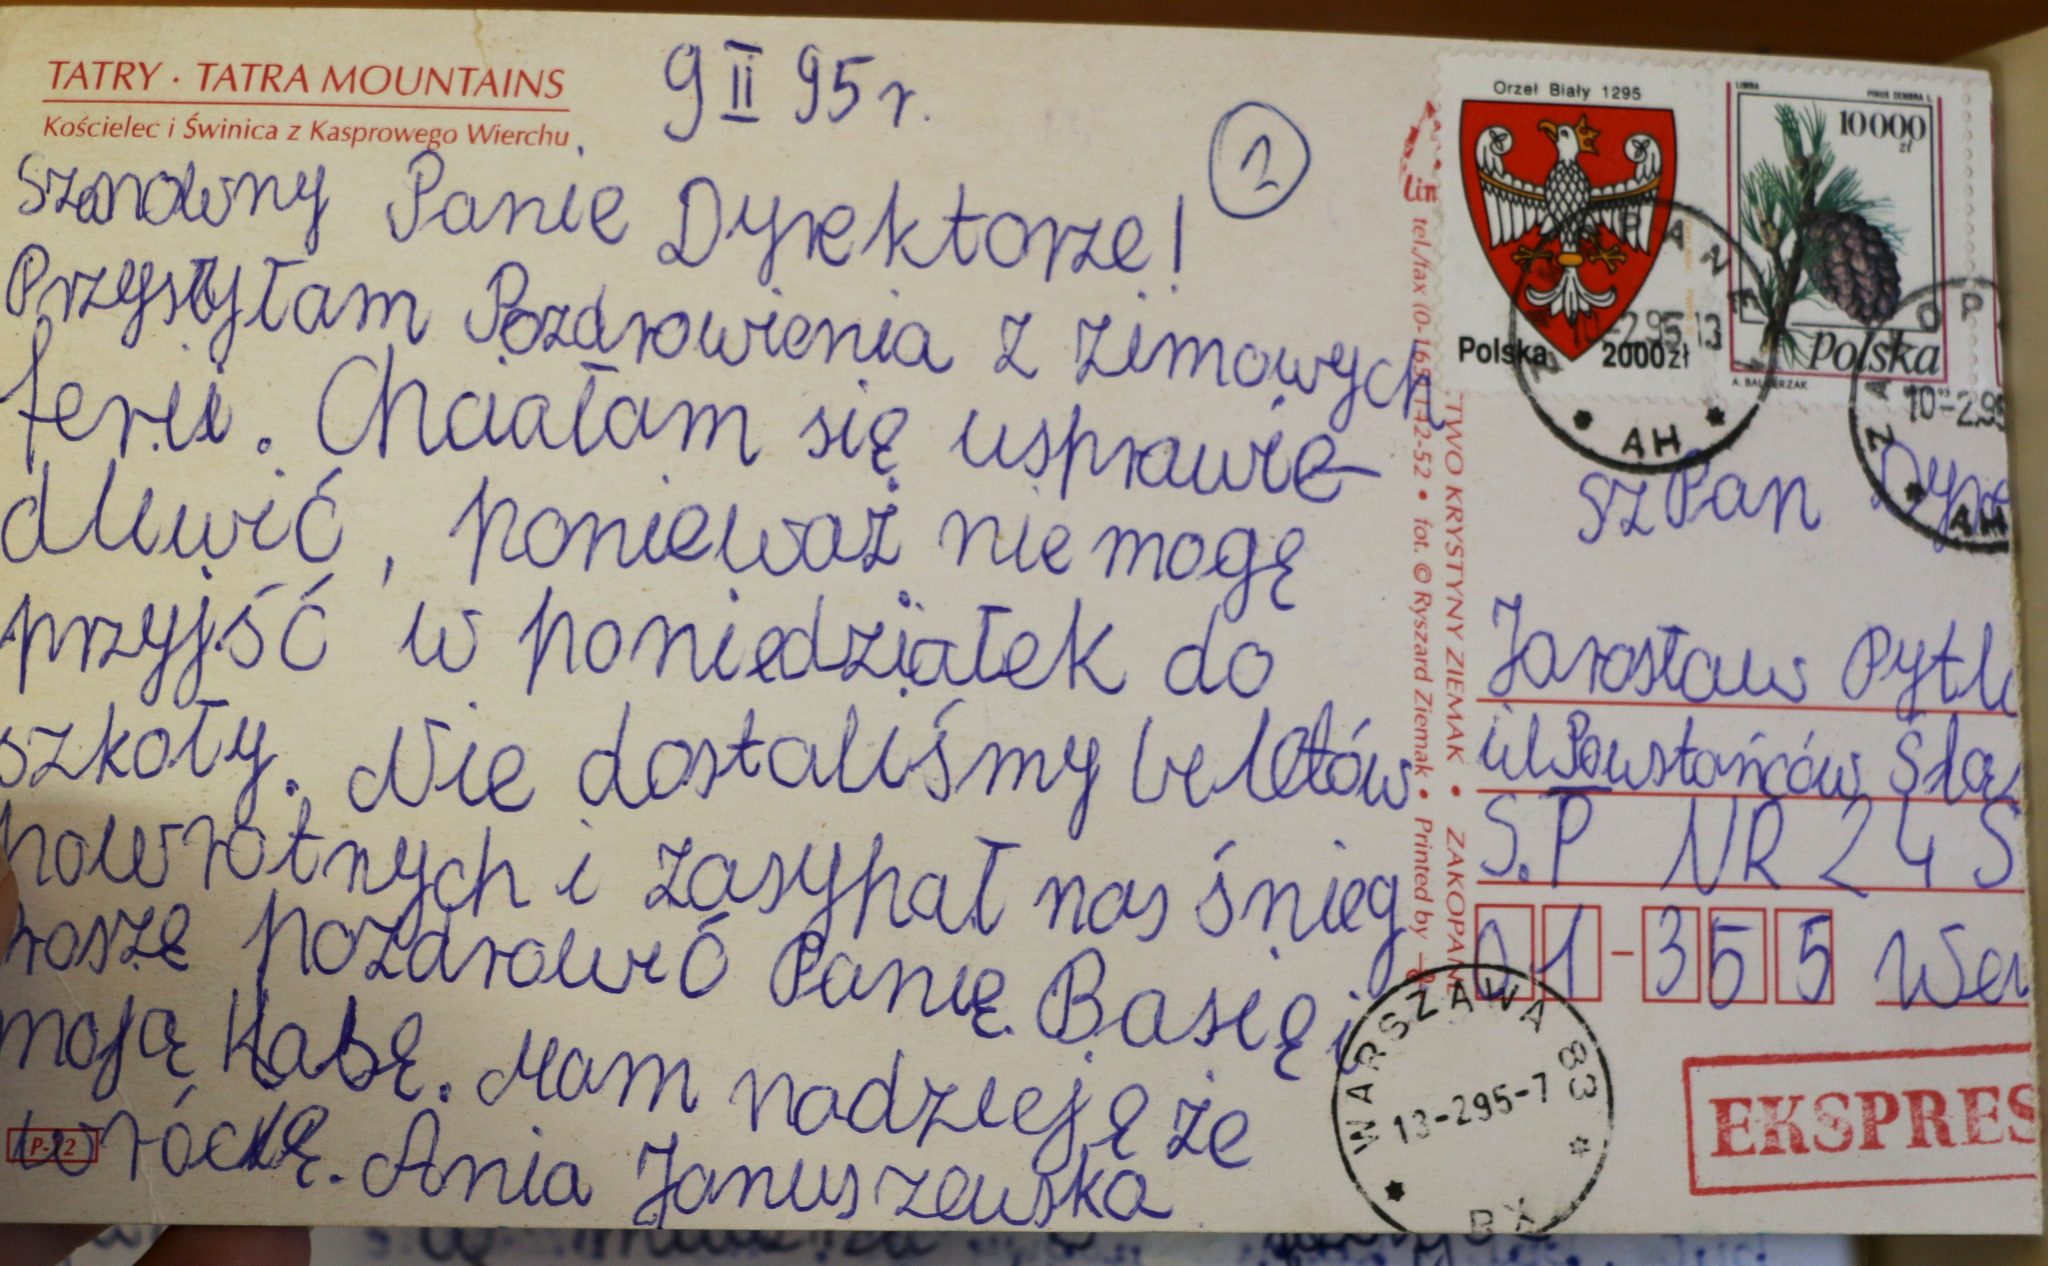 TATRY · TATRA MOUNTAINS
Kościelec i Świnica z Kasprowego Wierchu
9 II 95 r.
2
Szanowny Panie Dyrektorze!
Przysyłam Pozdrowienia z zimowych
ferii. Chciałam się usprawie-
dliwić, ponieważ nie mogę
przyjść w poniedziałek do
szkoły. Nie dostaliśmy biletów
powrotnych i zasypał nas śnieg
roszę pozdrowić Panię Basię i
moją klasę. Mam nadzieję że
wrócę. Ania Januszewska
P-22
tel./fax (0-165) 142-52 • fot. © Ryszard Ziemak • Printed by
TWO KRYSTYNY ZIEMAK • ZAKOPANE
Orzeł Biały 1295
Polska 2000 zł
LIMBA PINUS CEMBRA L.
10000 zł
Polska
A. BALCERZAK
AH
10-2.95
AH
Sz Pan Dyre
Jarosław Pytl
ul Powstańców Ślą
S.P NR 24 S
01-355 Wa
WARSZAWA 83
13-2.95-7
BX
EKSPRES